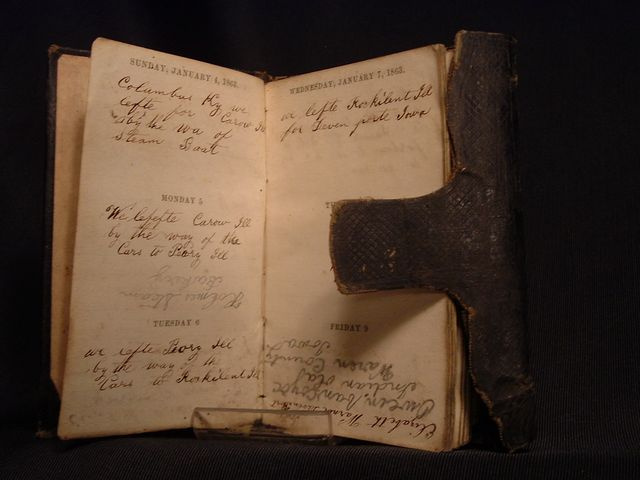 SUNDAY, JANUARY 4, 1863.
Columbus Ky we
lefte for Carow Ill
by the wa of
Steam Boat
MONDAY 5
We lefefte Carow Ill
by the way of the
Cars to Peory Ill
Steam
TUESDAY 6
we lefte Peory Ill
by the way of the
Cars to Roskilent Ill
WEDNESDAY, JANUARY 7, 1863.
we lefte Roskilent Ill
for Deven porte Iowa
FRIDAY 9
Elizabeth
Owen
Indian ola
Waren County
Iowa